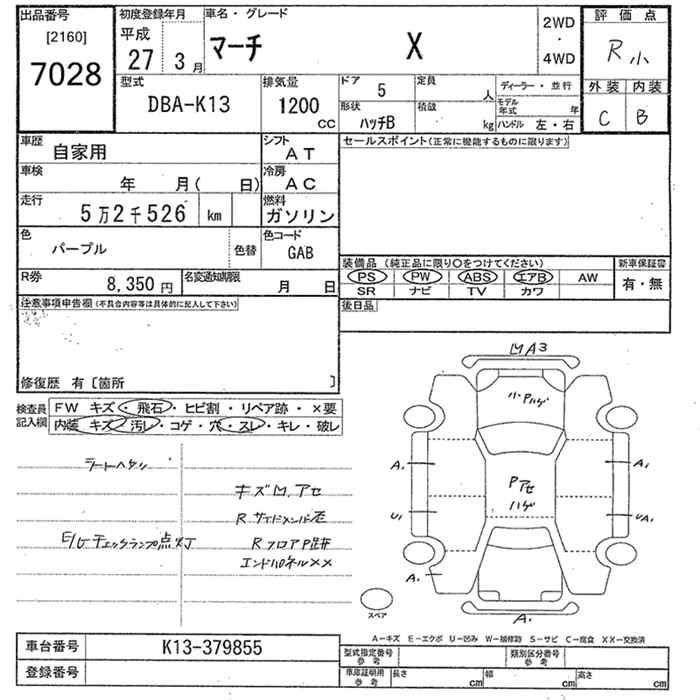 出品番号 初度登録年月 車名・グレード 評価点
[2160] 平成 2WD
7028 27 3月 マーチ X ・ R小
4WD
型式 排気量 ドア 5 定員 人 ディーラー・並行 外装 内装
DBA-K13 1200 cc 形状 ハッチB 積載 kg モデル年式 年 C B
ハンドル 左・右
車歴 自家用 シフト AT セールスポイント(正常に機能するものに限ります)
車検 年 月( 日) 冷房 AC
走行 5万2千526 km 燃料 ガソリン
色 パープル 色替 色コード GAB
装備品(純正品に限り○をつけてください) 新車保証書
R券 8,350円 名変通知期限 月 日 PS PW ABS エアB AW 有・無
SR ナビ TV カワ
注意事項申告欄(不具合内容等は具体的に記入して下さい) 後日品
修復歴 有〔箇所 〕
検査員 FW キズ・飛石・ヒビ割・リペア跡・×要
記入欄 内装 キズ・汚レ・コゲ・穴・スレ・キレ・破レ
MA3
小ハゲ
シートヘタリ
キズM.アセ
A1 Pアセ A1
Rサイドメンバー
ハゲ
U1 UA1
E/Gチェックランプ点灯 RフロアP
エンドパネル××
A1
スペア A1
A-キズ E-エクボ U-凹み W-補修跡 S-サビ C-腐食 XX-交換済
車台番号 K13-379855 型式指定番号 参考 類別区分番号 参考
登録番号 車庫証明用 参考 長さ cm 幅 cm 高さ cm